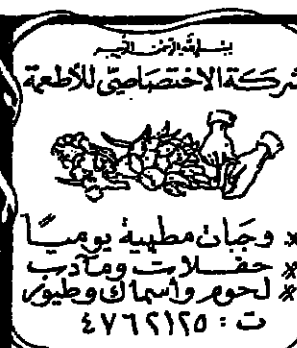 بسم الله الرحمن الرحيم
شركة الاختصاصي للأطعمة
* وجبات مطهية يوميا
* حفلات ومآدب
* لحوم وأسماك وطيور
ت : ٤٧٦٢١٢٥